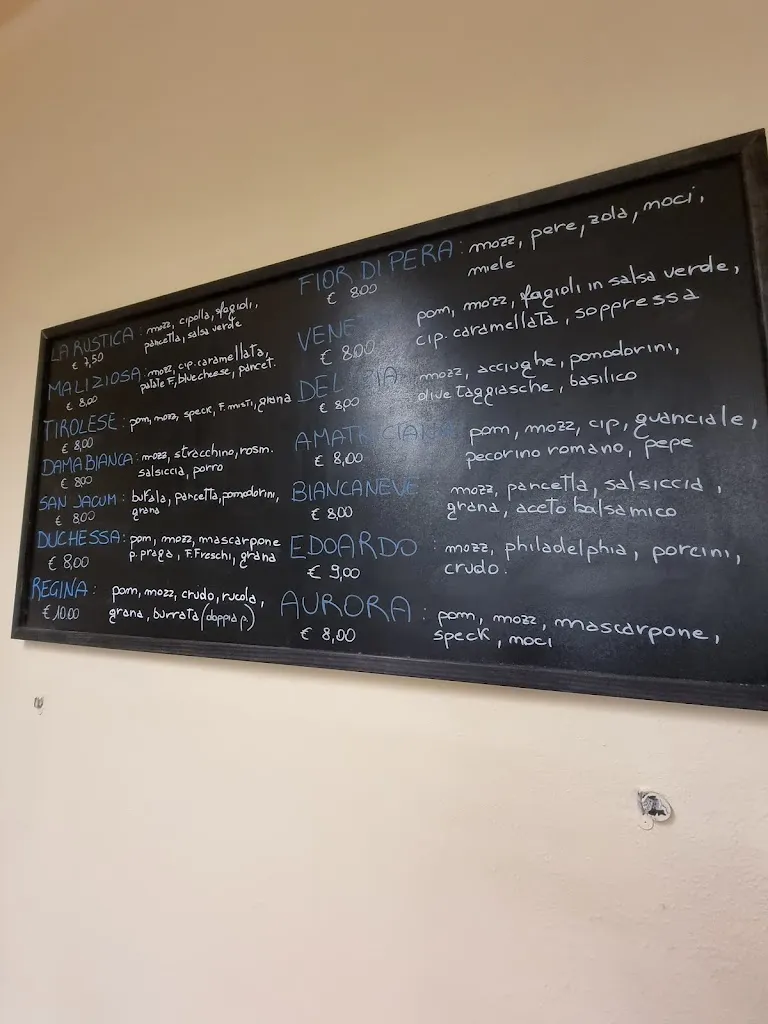 LA RUSTICA: mozz, cipolla, fagioli,
pancetta, salsa verde
€ 7,50
MALIZIOSA: mozz, cip. caramellata,
patate F, bluecheese, pancet.
€ 8,00
TIROLESE: pom, mozz, speck, F. misti, grana
€ 8,00
DAMA BIANCA: mozz, stracchino, rosm.
salsiccia, porro
€ 8,00
SAN JACUM: bufala, pancetta, pomodorini,
grana
€ 8,00
DUCHESSA: pom, mozz, mascarpone
p. praga, F. Freschi, grana
€ 8,00
REGINA: pom, mozz, crudo, rucola,
grana, burrata (doppia p.)
€ 10.00
FIOR DI PERA: mozz, pere, zola, noci,
miele
€ 8.00
pom, mozz, fagioli in salsa verde,
cip. caramellata, soppressa
€ 8.00
mozz, acciughe, pomodorini,
olive taggiasche, basilico
€ 8,00
AMATRICIANA pom, mozz, cip, guanciale,
pecorino romano, pepe
€ 8,00
BIANCANEVE mozz, pancetta, salsiccia,
grana, aceto balsamico
€ 8,00
EDOARDO: mozz, philadelphia, porcini,
crudo.
€ 9,00
AURORA: pom, mozz, mascarpone,
speck, noci
€ 8,00